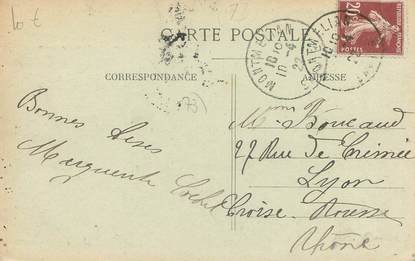 lot
CARTE POSTALE
CORRESPONDANCE
ADRESSE
20c
POSTES
Bonnes bises
Marguerite
Mme Boucaud
27 Rue de Crimée
Lyon
Croise. Rousse
Rhône